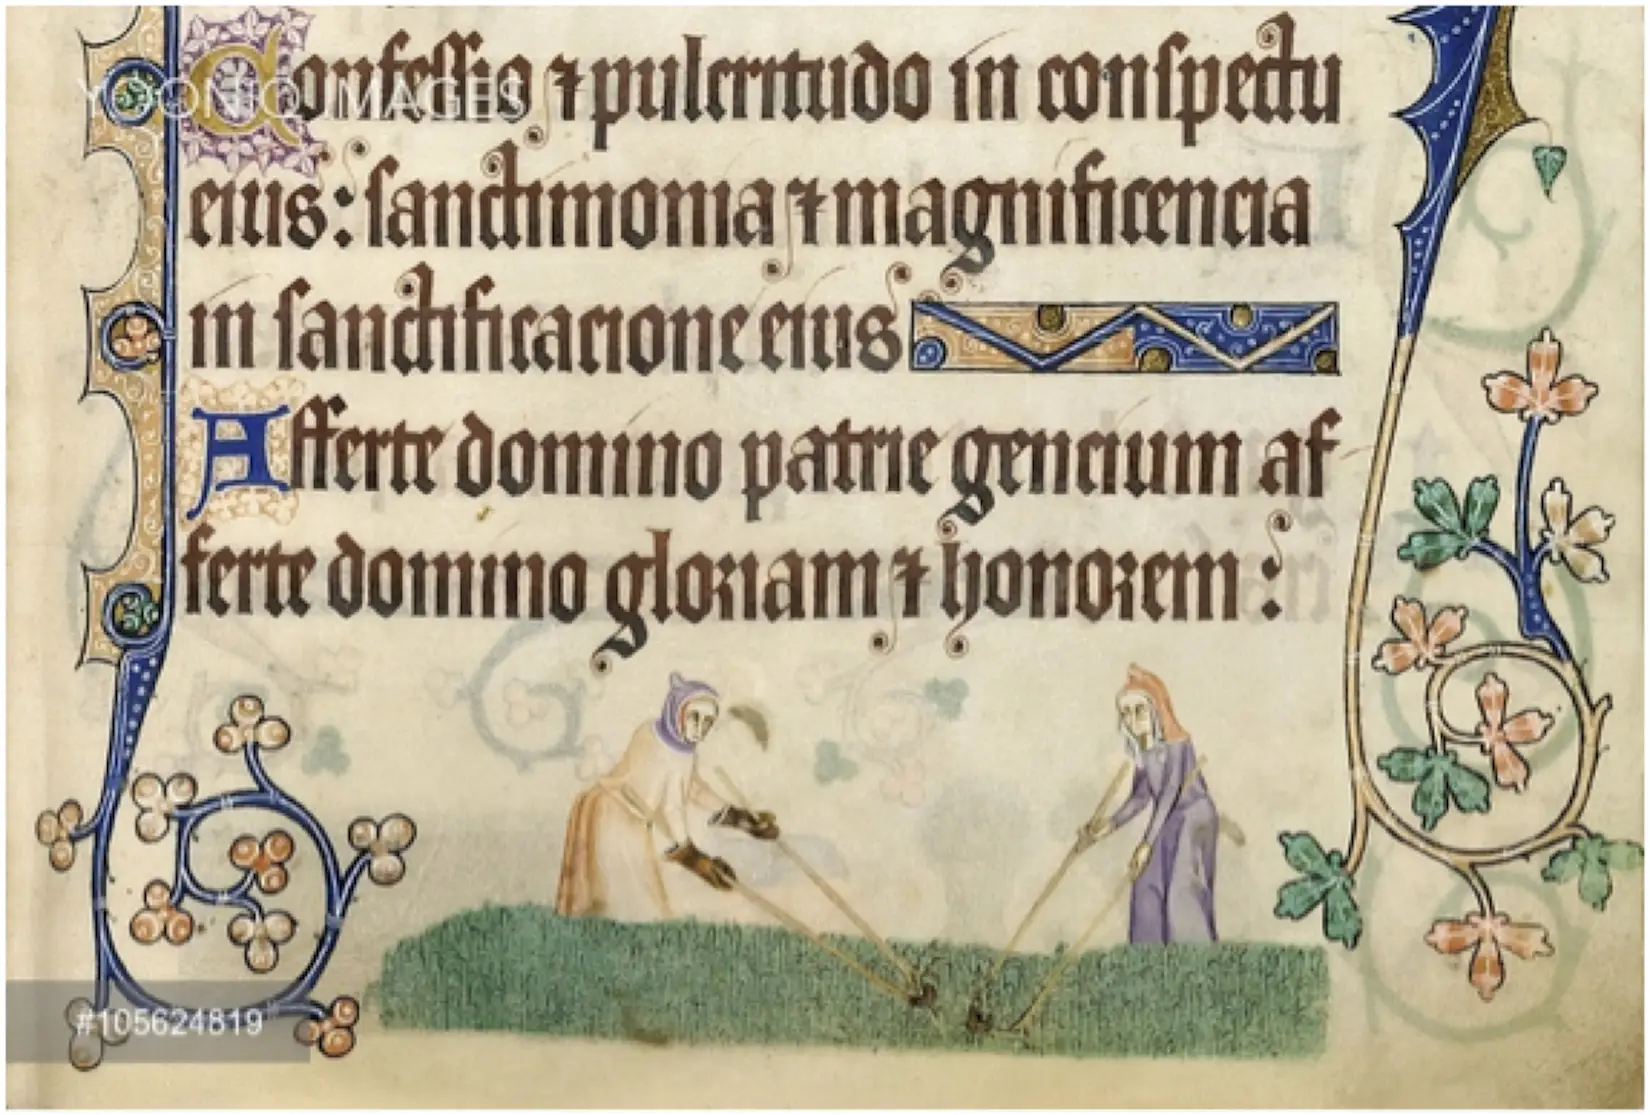 Confessio ⁊ pulcritudo in conspectu
YOONIQ IMAGES
eius: sanctimonia ⁊ magnificencia
in sanctificacione eius
Afferte domino patrie gencium af
ferte domino gloriam ⁊ honorem:
#105624819